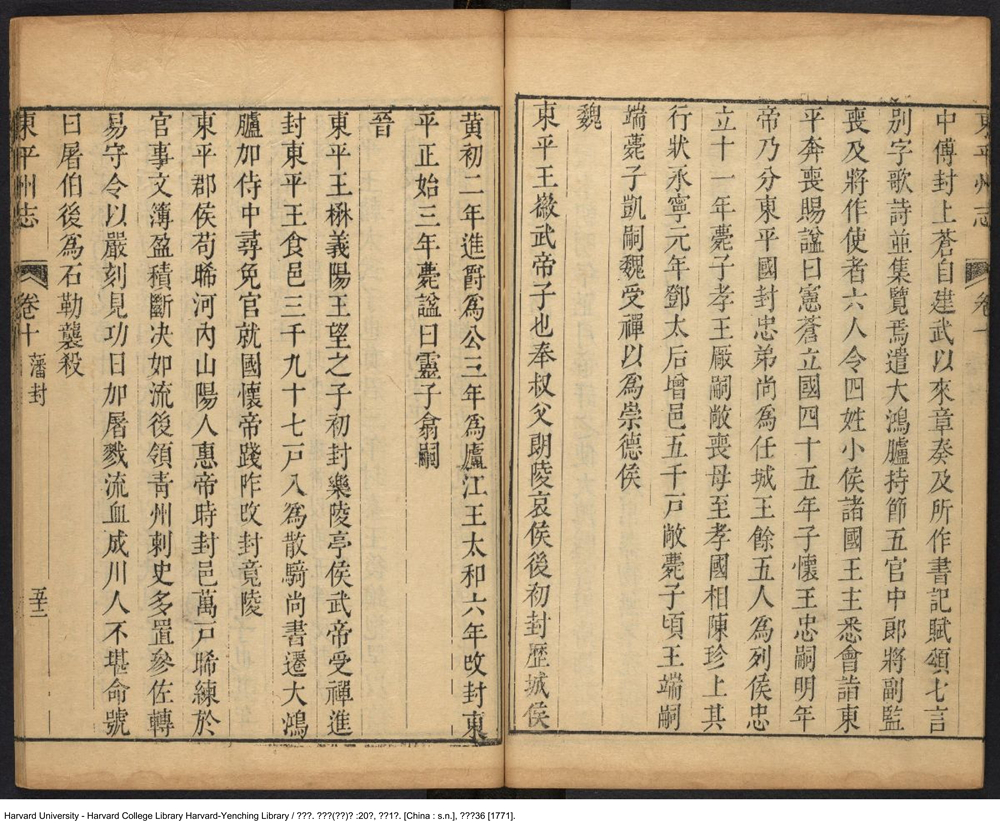 東平州志 卷十
中傅封上蒼自建武以來章奏及所作書記賦頌七言
別字歌詩並集覽焉遣大鴻臚持節五官中郎將副監
喪及將作使者六人令四姓小侯諸國王主悉會詣東
平奔喪賜諡曰憲蒼立國四十五年子懷王忠嗣明年
帝乃分東平國封忠弟尚為任城王餘五人為列侯忠
立十一年薨子孝王厰嗣敞喪母至孝國相陳珍上其
行狀永寧元年鄧太后增邑五千戸敞薨子頃王端嗣
端薨子凱嗣魏受禪以為崇德侯
魏
東平王徽武帝子也奉叔父朗陵哀侯後初封歷城侯
黃初二年進爵為公三年為廬江王太和六年改封東
平正始三年薨諡曰靈子翕嗣
晉
東平王楙義陽王望之子初封樂陵亭侯武帝受禪進
封東平王食邑三千九十七戸入為散騎尚書遷大鴻
臚加侍中尋免官就國懷帝踐阼改封竟陵
東平郡侯苟晞河內山陽人惠帝時封邑萬戸晞練於
官事文簿盈積斷决如流後領青州刺史多置參佐轉
易守令以嚴刻見功日加屠戮流血成川人不堪命號
曰屠伯後為石勒襲殺
東平州志 卷十 藩封 五十二
Harvard University - Harvard College Library Harvard-Yenching Library / ???. ???(??)? :20?, ??1?. [China : s.n.], ???36 [1771].